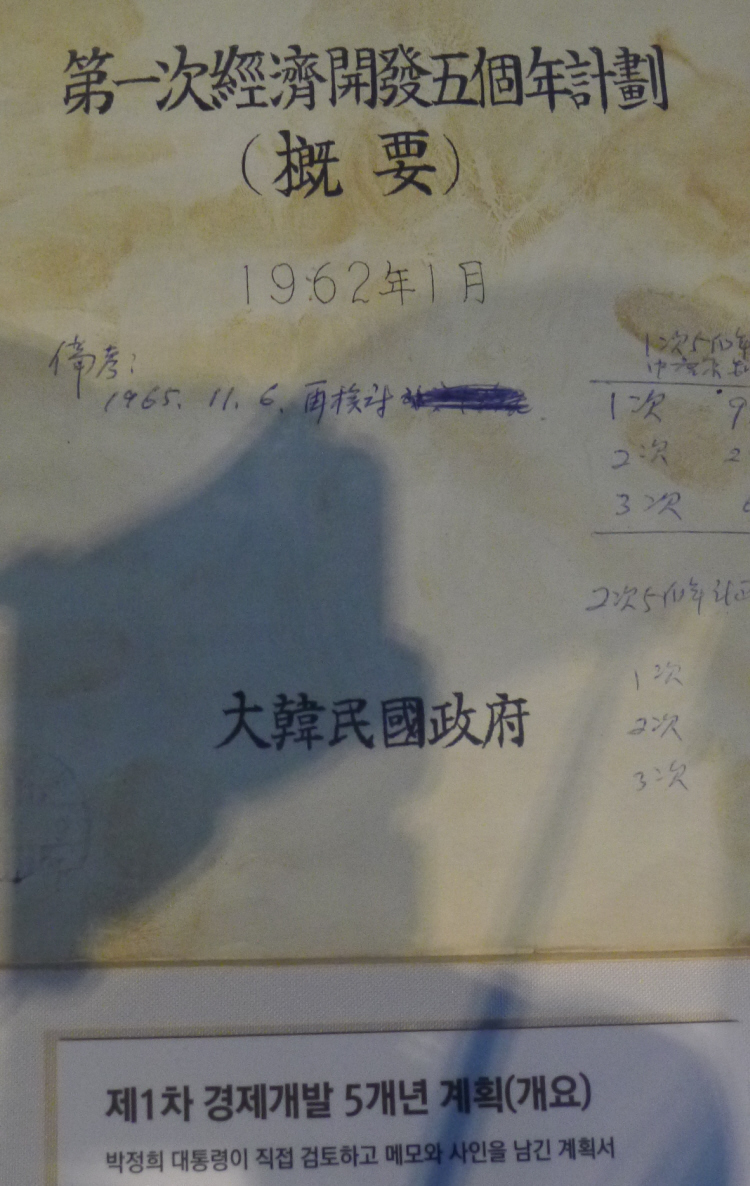 第一次經濟開發五個年計劃
(概要)
1962年1月
備考:
1965. 11. 6. 再檢討
1次5個年
1次 9
2次 2
3次
2次5個年計画
1次
2次
3次
大韓民國政府
제1차 경제개발 5개년 계획(개요)
박정희 대통령이 직접 검토하고 메모와 사인을 남긴 계획서